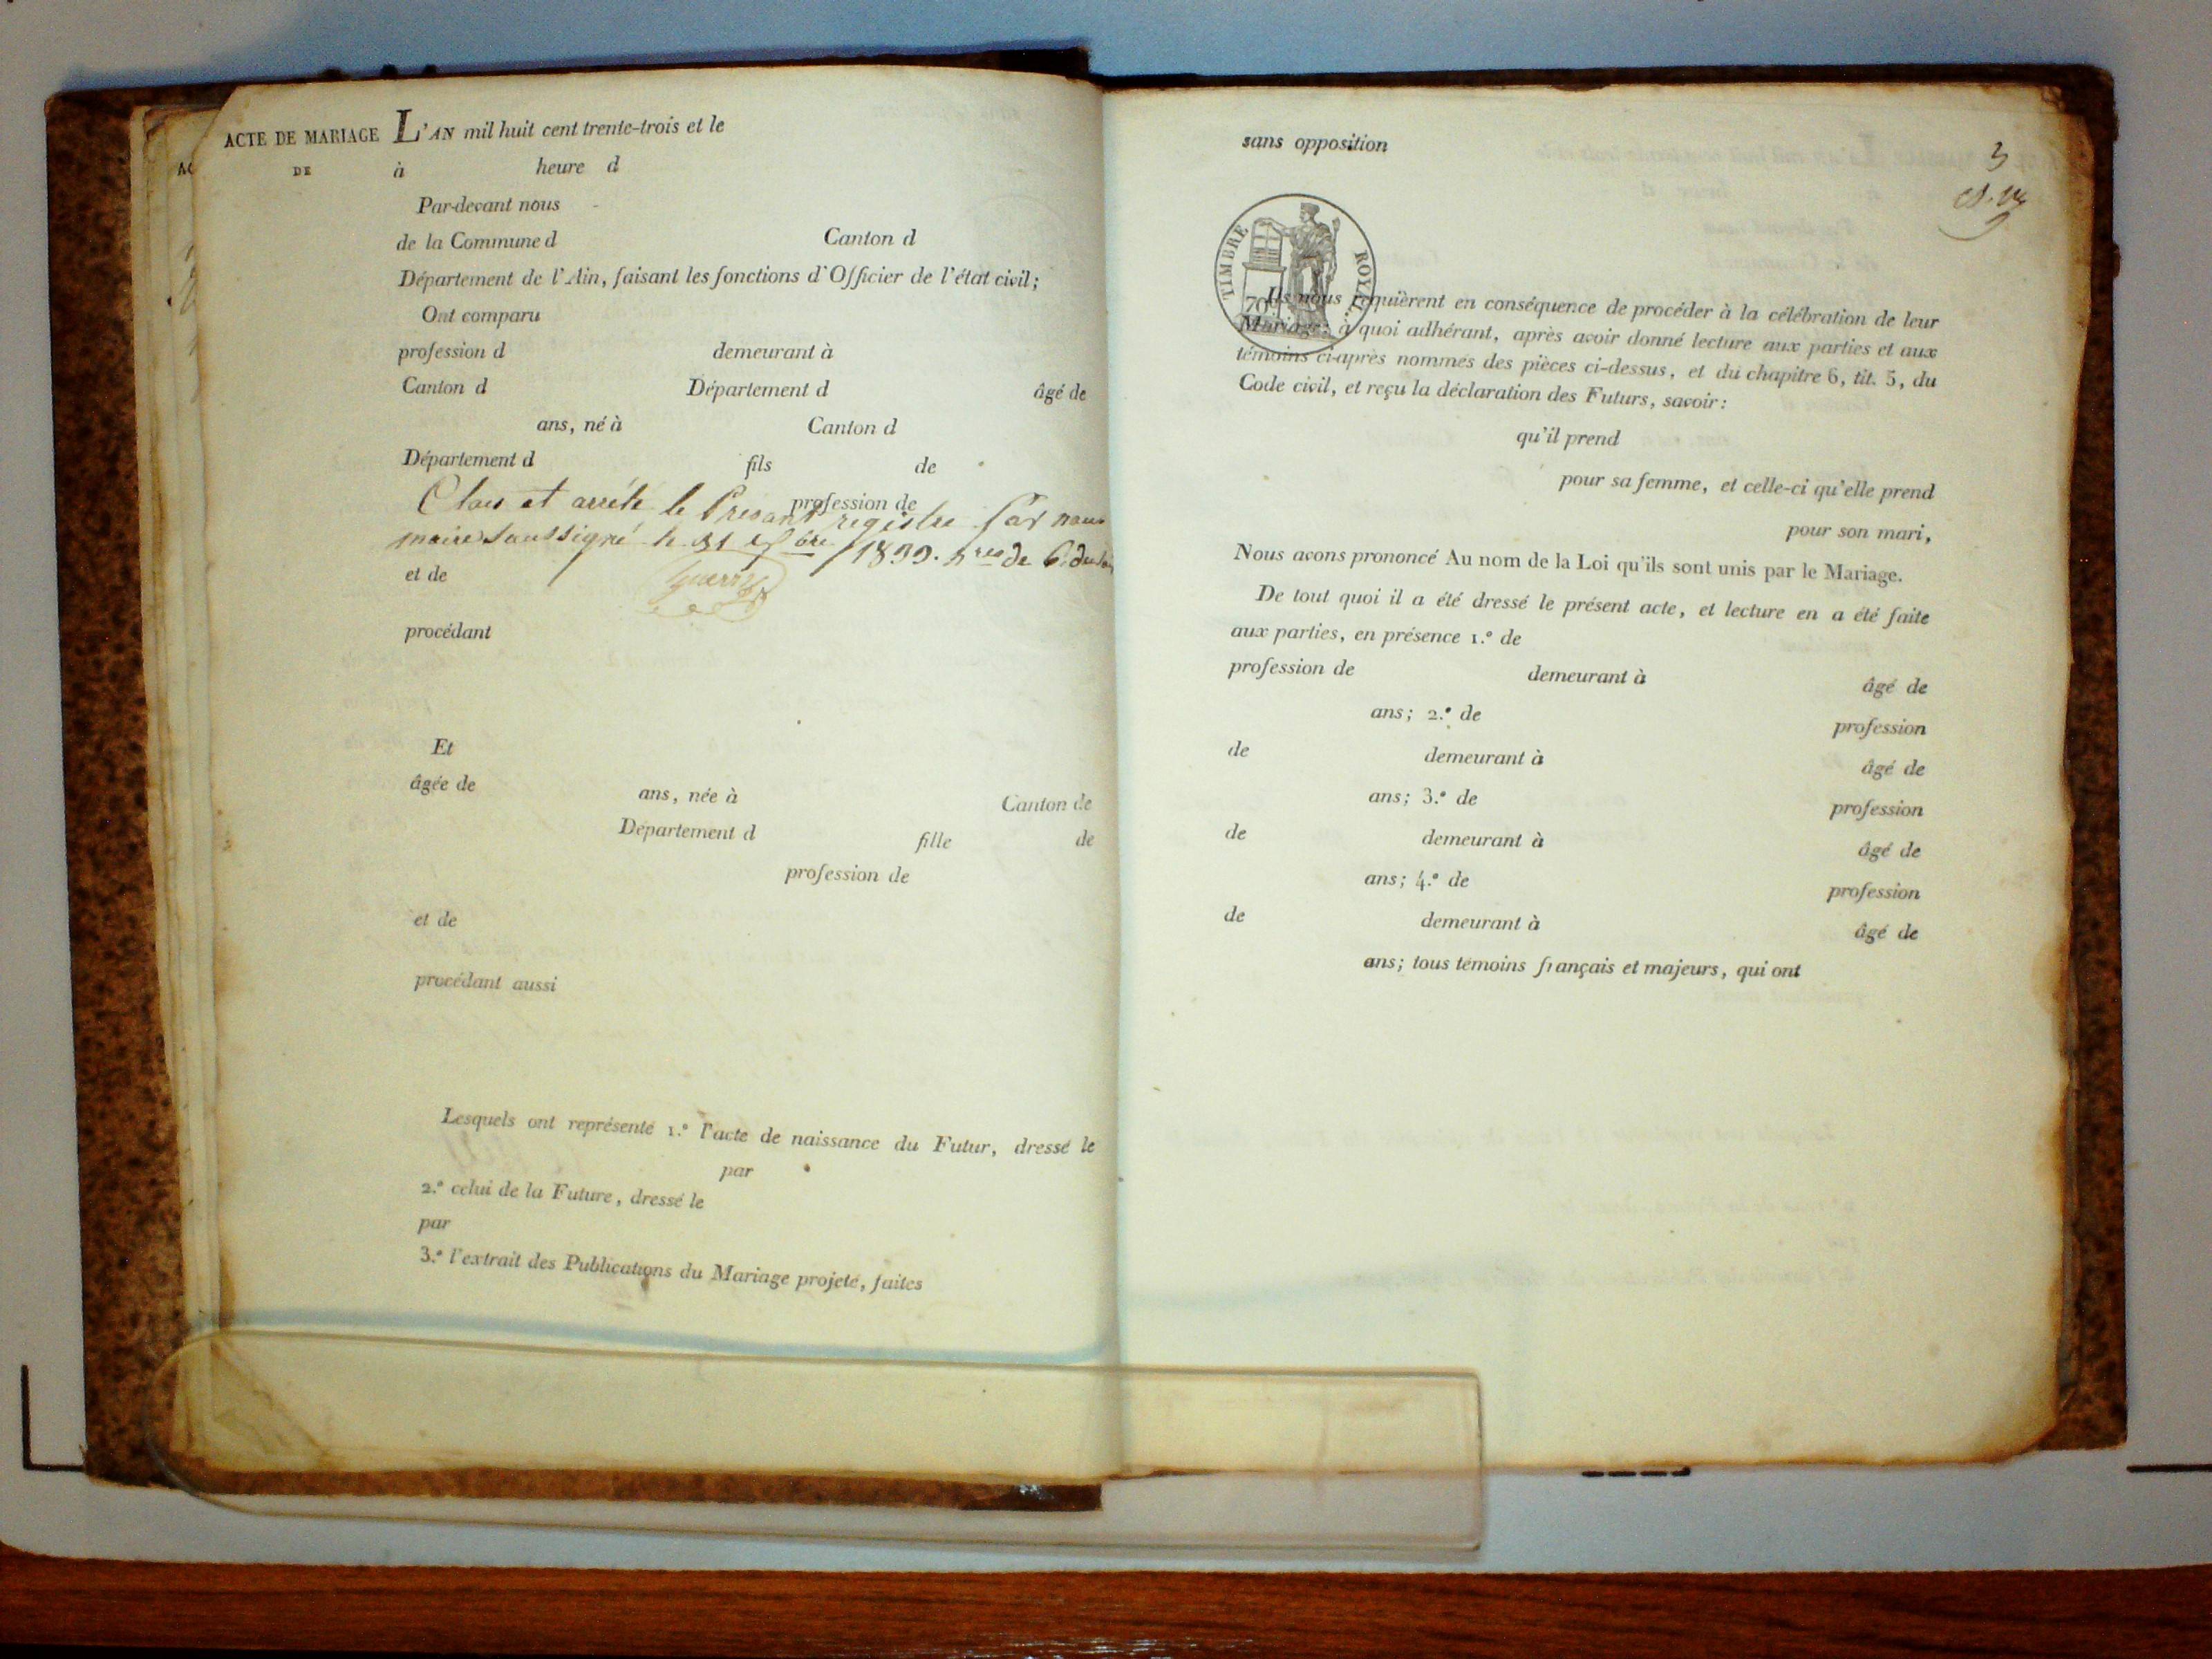 ACTE DE MARIAGE L'AN mil huit cent trente-trois et le
DE à heure d
Par-devant nous
de la Commune d Canton d
Département de l'Ain, faisant les fonctions d'Officier de l'état civil;
Ont comparu
profession d demeurant à
Canton d Département d âgé de
ans, né à Canton d
Département d fils de
profession de
Clos et arrêté le Présant registre par nous
maire Soussigné le 31 bre 1833.
et de
procédant
Et
âgée de ans, née à Canton de
Département d fille de
profession de
et de
procédant aussi
Lesquels ont représenté 1.º l'acte de naissance du Futur, dressé le
par
2.º celui de la Future, dressé le
par
3.º l'extrait des Publications du Mariage projeté, faites
sans opposition
3
TIMBRE ROYAL
70
Ils nous requièrent en conséquence de procéder à la célébration de leur
Mariage; à quoi adhérant, après avoir donné lecture aux parties et aux
témoins ci-après nommés des pièces ci-dessus, et du chapitre 6, tit. 5, du
Code civil, et reçu la déclaration des Futurs, savoir:
qu'il prend
pour sa femme, et celle-ci qu'elle prend
pour son mari,
Nous avons prononcé Au nom de la Loi qu'ils sont unis par le Mariage.
De tout quoi il a été dressé le présent acte, et lecture en a été faite
aux parties, en présence 1.º de
profession de demeurant à âgé de
ans; 2.º de profession
de demeurant à âgé de
ans; 3.º de profession
de demeurant à âgé de
ans; 4.º de profession
de demeurant à âgé de
ans; tous témoins français et majeurs, qui ont